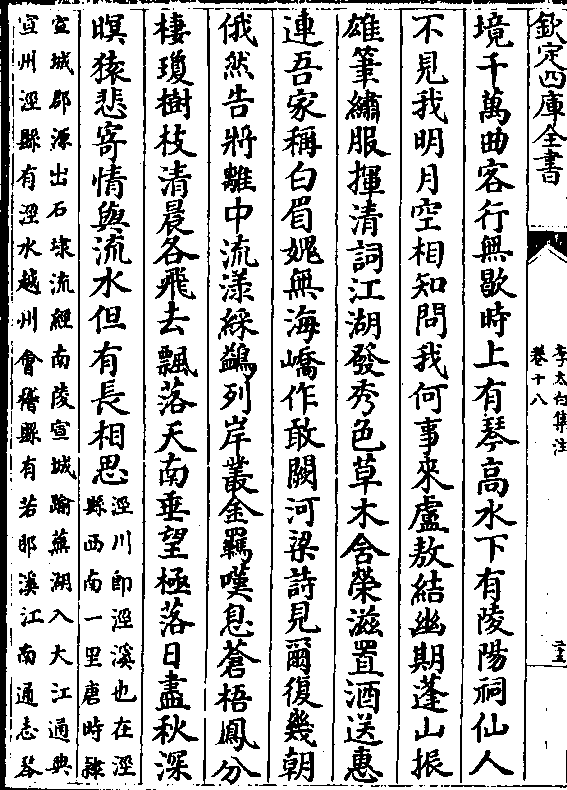 欽定四庫全書
李太白集注
卷十八
境千萬曲客行無歇時上有琴高水下有陵陽祠仙人
不見我明月空相知問我何事來盧敖結幽期蓬山振
雄筆繡服揮清詞江湖發秀色草木含榮滋置酒送惠
連吾家稱白眉媿無海嶠作敢闕河梁詩見爾復幾朝
俄然告將離中流漾綵鷁列岸叢金羈嘆息蒼梧鳳分
棲瓊樹枝清晨各飛去飄落天南垂望極落日盡秋深
暝猿悲寄情與流水但有長相思
涇川即涇溪也在涇
縣西南一里唐時隸
宣城郡源出石埭流經南陵宣城踰蕪湖入大江通典
宣州涇縣有涇水越州會稽縣有若耶溪江南通志琴